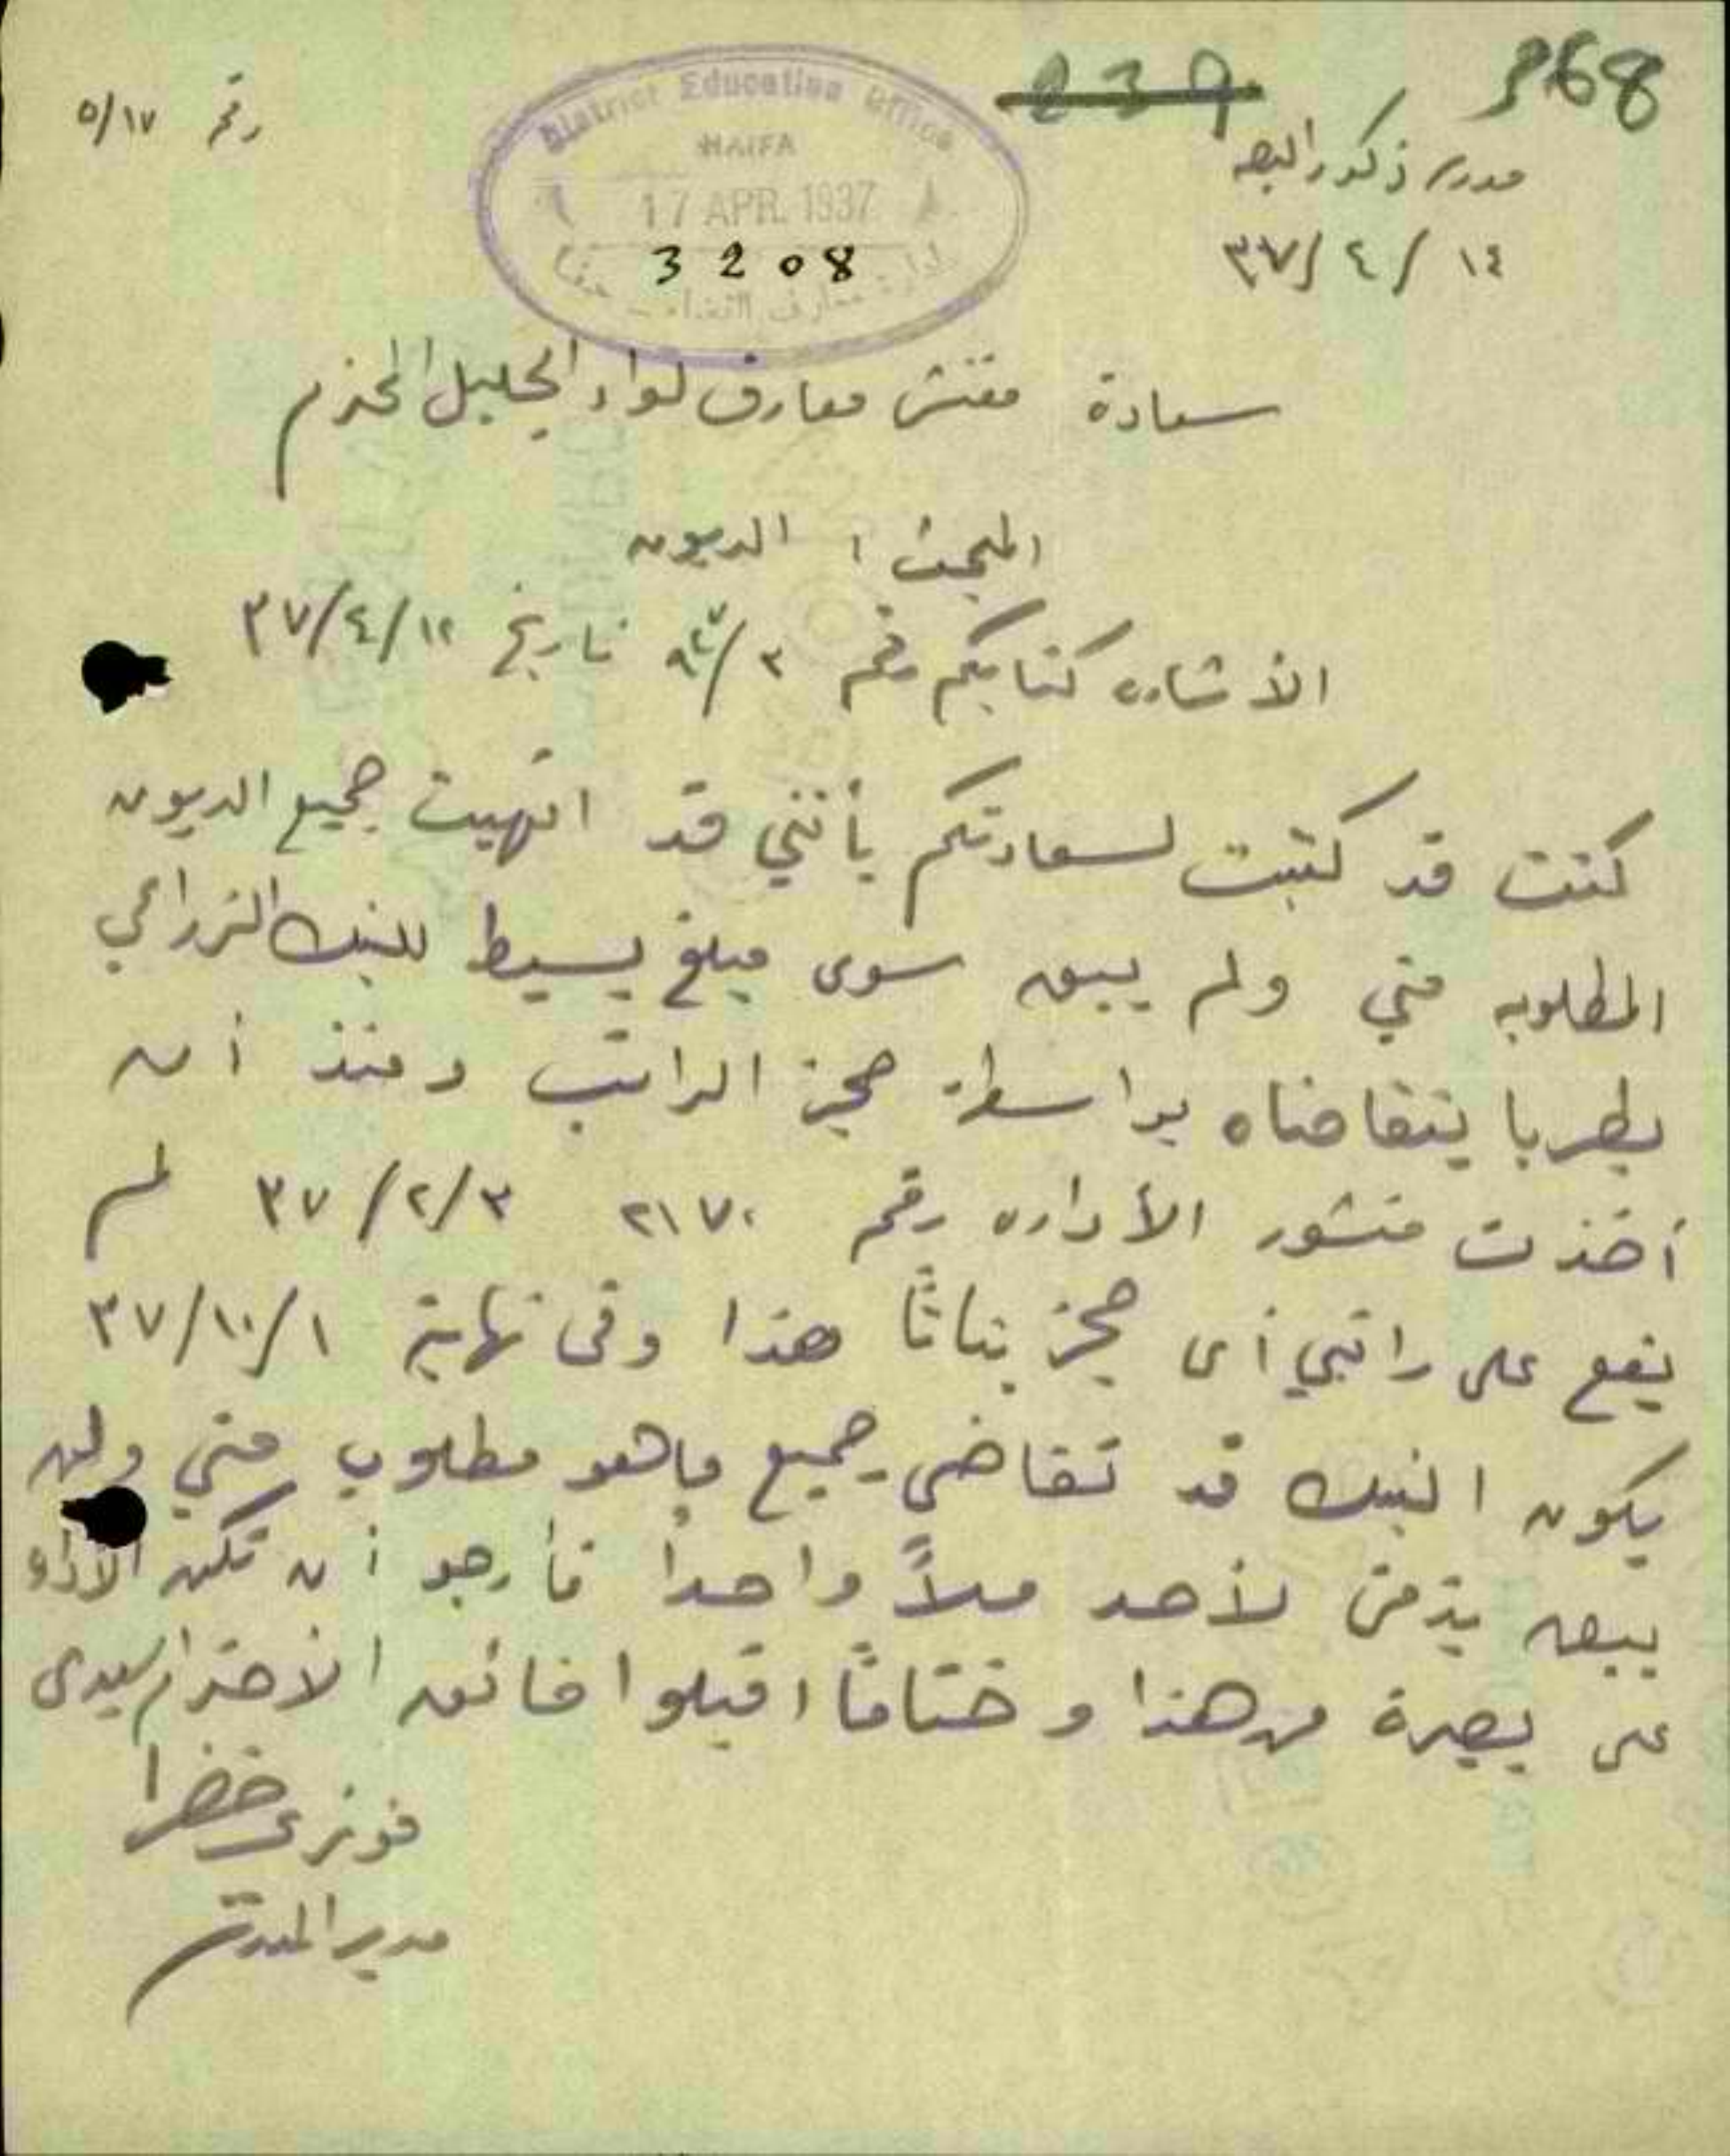 268
239
مدرسة ذكور البصه
رقم ٥/١٧
District Education Office
HAIFA
17 APR. 1937
3208
إدارة معارف القضاء - حيفا
١٤/٤/٣٧
سعادة مفتش معارف لواء الجليل المحترم
المبحث : الديون
الأشاره كتابكم رقم ٣/ تاريخ ١٢/٤/٣٧
كنت قد كتبت لسعادتكم بأنني قد انهيت جميع الديون
المطلوبه مني ولم يبق سوى مبلغ بسيط للبنك الزراعي
بطبريا يتقاضاه بواسطة حجز الراتب ومنذ أن
أخذت منشور الأداره رقم ٢١٧٠ ٣/٢/٣٧ لم
يقع على راتبي أى حجز بتاتًا هذا وفى نهاية ١/١٠/٣٧
يكون البنك قد تقاضى جميع ما هو مطلوب مني ولن
يبقى بذمتي لأحد ملاً واحدا فأرجو أن تكن الأداره
على بصيرة من هذا وختامًا اقبلوا فائق الأحترام سيدى
فوزى خضرا
مدير المدرسة